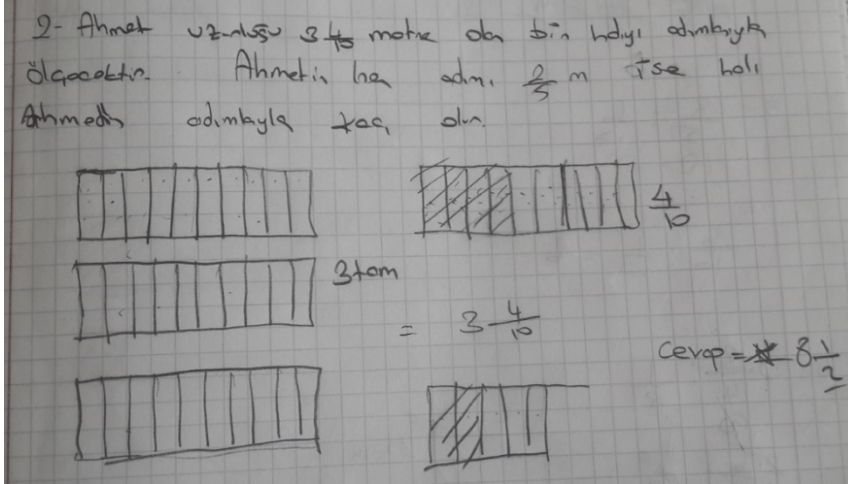 2- Ahmet uzunluğu 3 4/10 metre olan bir halıyı adımlarıyla
ölçecektir. Ahmetin her adımı 2/5 m ise halı
Ahmedin adımlarıyla kaç olur.
4/10
3 tam
= 3 4/10
Cevap = 8 1/2